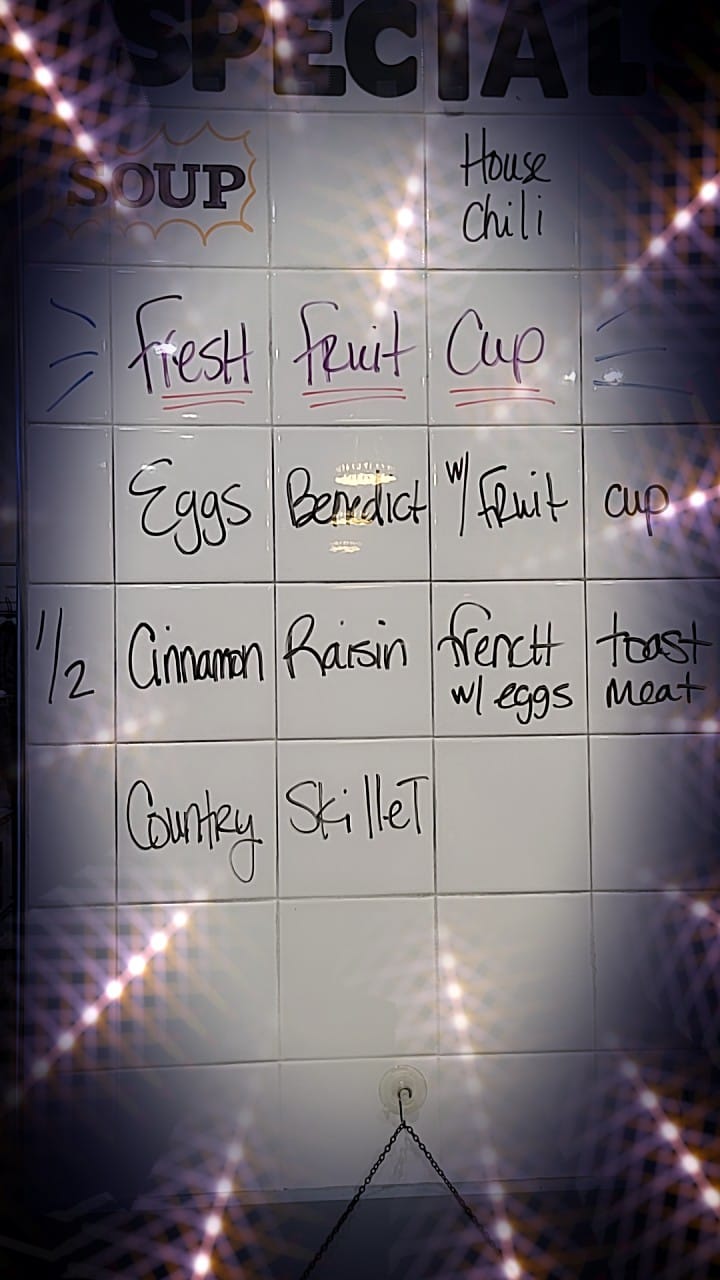 SPECIALS
SOUP House
Chili
Fresh Fruit Cup
Eggs Benedict w/ Fruit cup
1/2 Cinnamon Raisin french toast
w/ eggs meat
Country Skillet